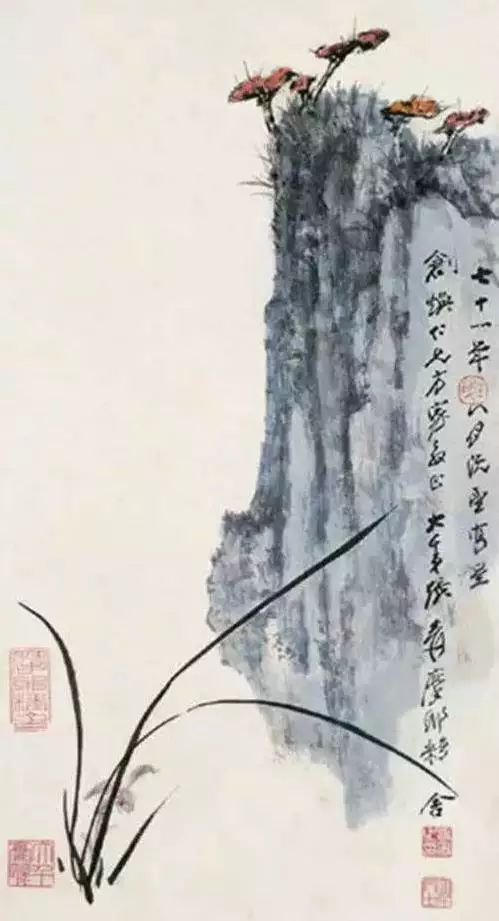 七十一年八月既望寫呈
創煥仁兄方家教正 大千弟張爰摩耶精舍